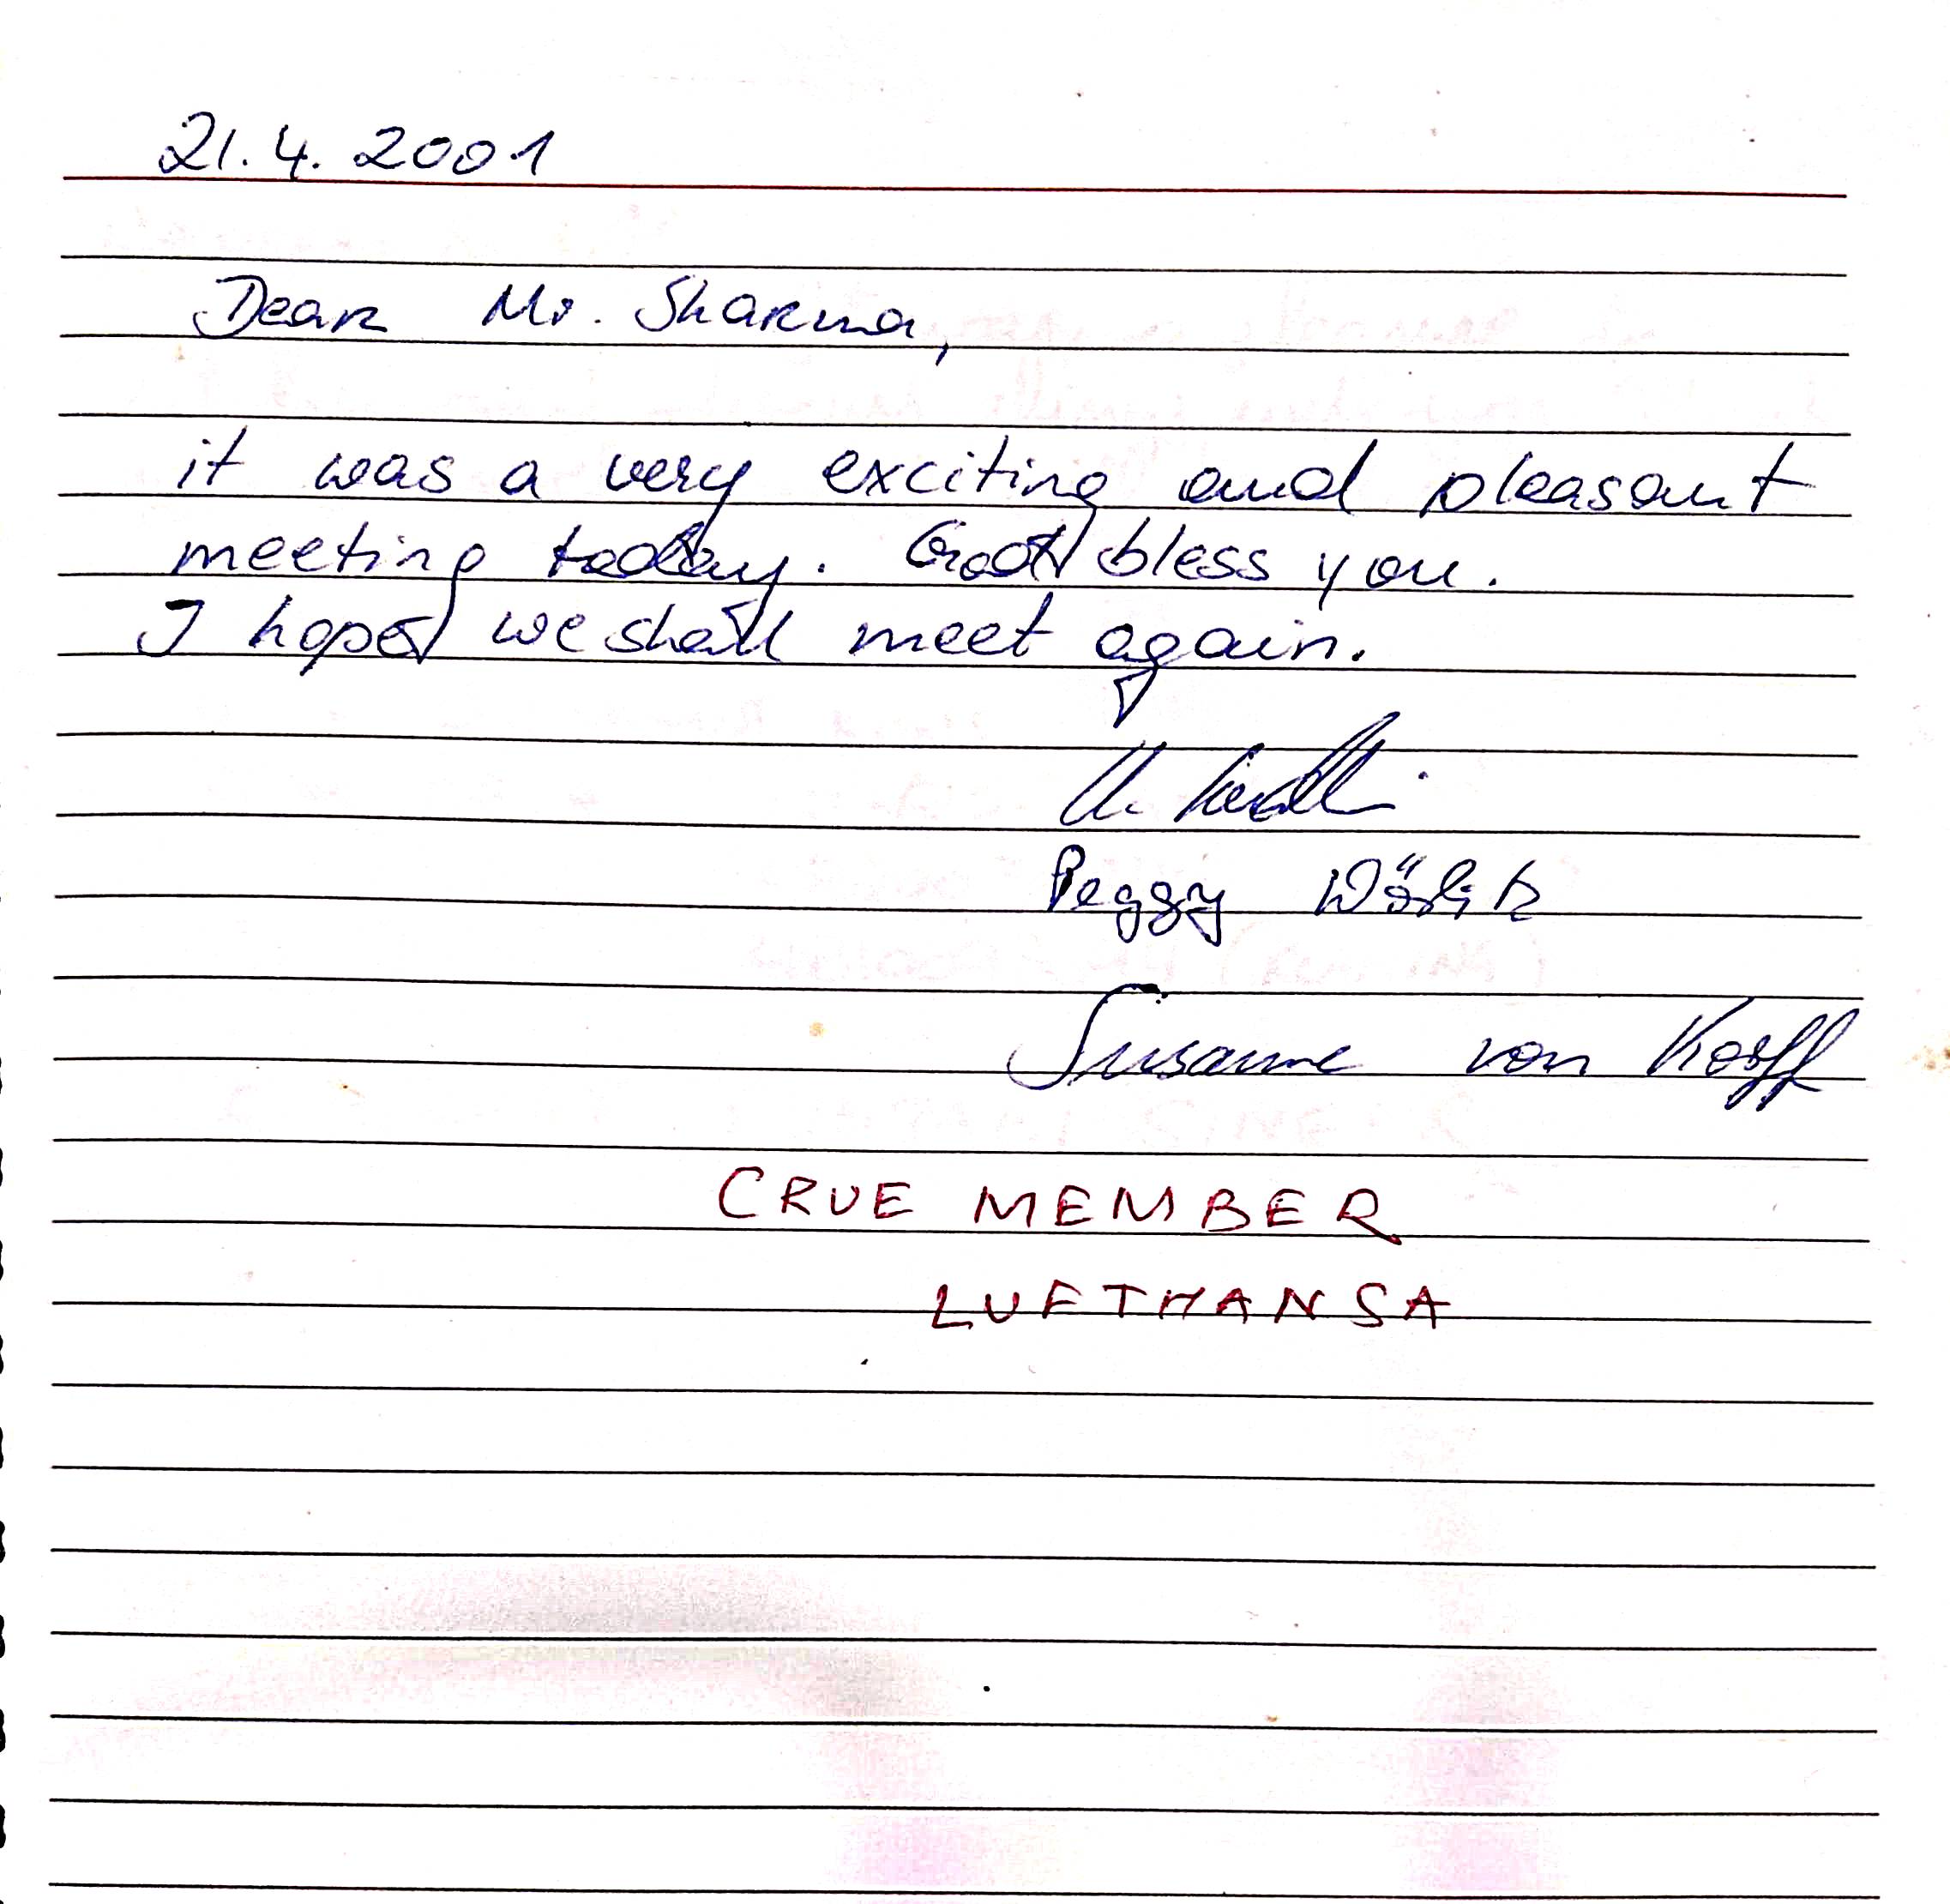 21.4.2001
Dear Mr. Sharma,
it was a very exciting and pleasant
meeting today. God bless you.
I hope we shall meet again.
Peggy
Susanne von Korff
CRUE MEMBER
LUFTHANSA